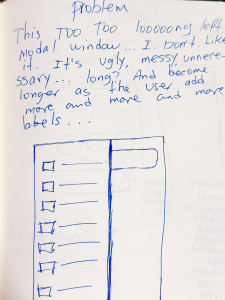 problem
This TOO TOO looooong left
modal window... I. Don't. Like
it. It's ugly, messy unnece-
ssary... long? And become
longer as the user add
more and more and more
labels...